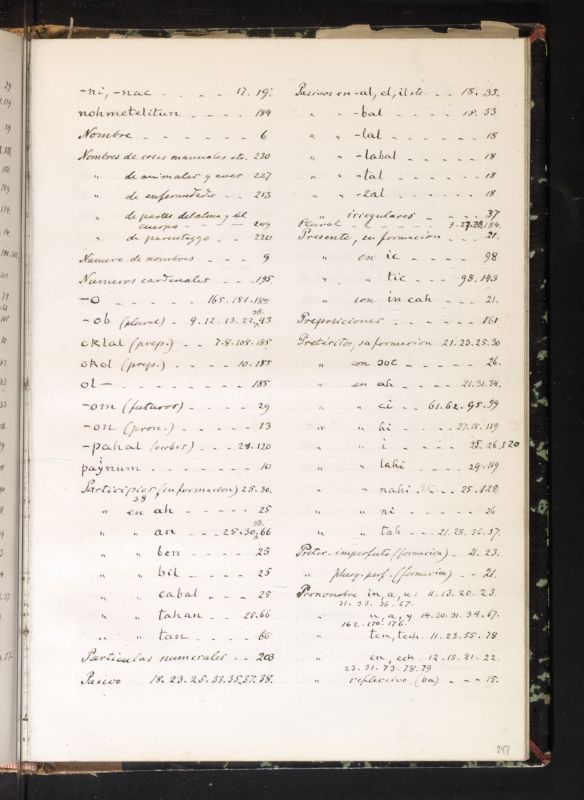 -ni, -nac - - - - - 17. 19.
nohmetelitun - - - - 184
Nombre - - - - - - - 6
Nombres de cosas manuales etc. 230
" de animales y aves 227
" de enfermedades - - 213
" de partes del alma y del
cuerpo - - - - - 209
" de parentezgo - - 220
Numero de nombres - - - 9
Numeros cardenales - - - 195
-o - - - - - 165. 181. 189
-ob (plural) - 9. 12. 13. 22. 38. 43
oklal (prep.) - - 7. 8. 108. 185
okol (prep.) - - - - 10. 185
ol- - - - - - - - 185
-om (futuros) - - - - 29
-on (pron.) - - - - - 13
-pahal (verbos) - - - 28. 120
paynum - - - - - - 10
Participios (su formacion) 25. 30.
38
" en ah - - - - - 25
" " an - - - 25. 30. 38. 66
" " ben - - - - 25
" " bil - - - - 25
" " cabal - - - 25
" " tahan - - 25. 66
" " tan - - - - 66
Particulas numerales - - 203
Pasivo 18. 23. 25. 33. 35. 37. 38.
Pasivos en -al, el, il etc. - - 18. 35.
" " -bal - - - - 18. 33
" " -lal - - - - - 18
" " -labal - - - - 18
" " -tal - - - - - 18
" " -zal - - - - - 18
" irregulares - - - - 37
Plural - - - - - - 9. 184.
Presente, su formacion - - - 21.
" en ic - - - - - 98
" " tic - - - 98. 143
" con in cah - - - 21.
Preposiciones - - - - - 161
Pretéritos, su formacion 21. 23. 25. 30
" con ɔoc - - - - - 26.
" en ah - - - - 21. 31. 34.
" " ci - - 61. 62. 95. 99
" " hi - - - - 27. 18. 119
" " i - - - - 25. 26. 120
" " lahi - - - - 29. 119
" " nahi - - 25. 125
" " ni - - - - - 26
" " tah - - 21. 28. 36. 37.
Preter. imperfecto (formacion) - 21. 23.
" plusq. perf. (formacion) - - 21.
Pronombre in, a, u: 11. 13. 20. 23.
31. 33. 36. 67.
" u, a, y 14. 20. 31. 34. 67.
162. 170. 176.
" ten, tech. 11. 23. 55. 78
" en, ech. 12. 15. 21. 22.
23. 31. 73. 78. 79
" reflexivo (ba) - - - 15.
247